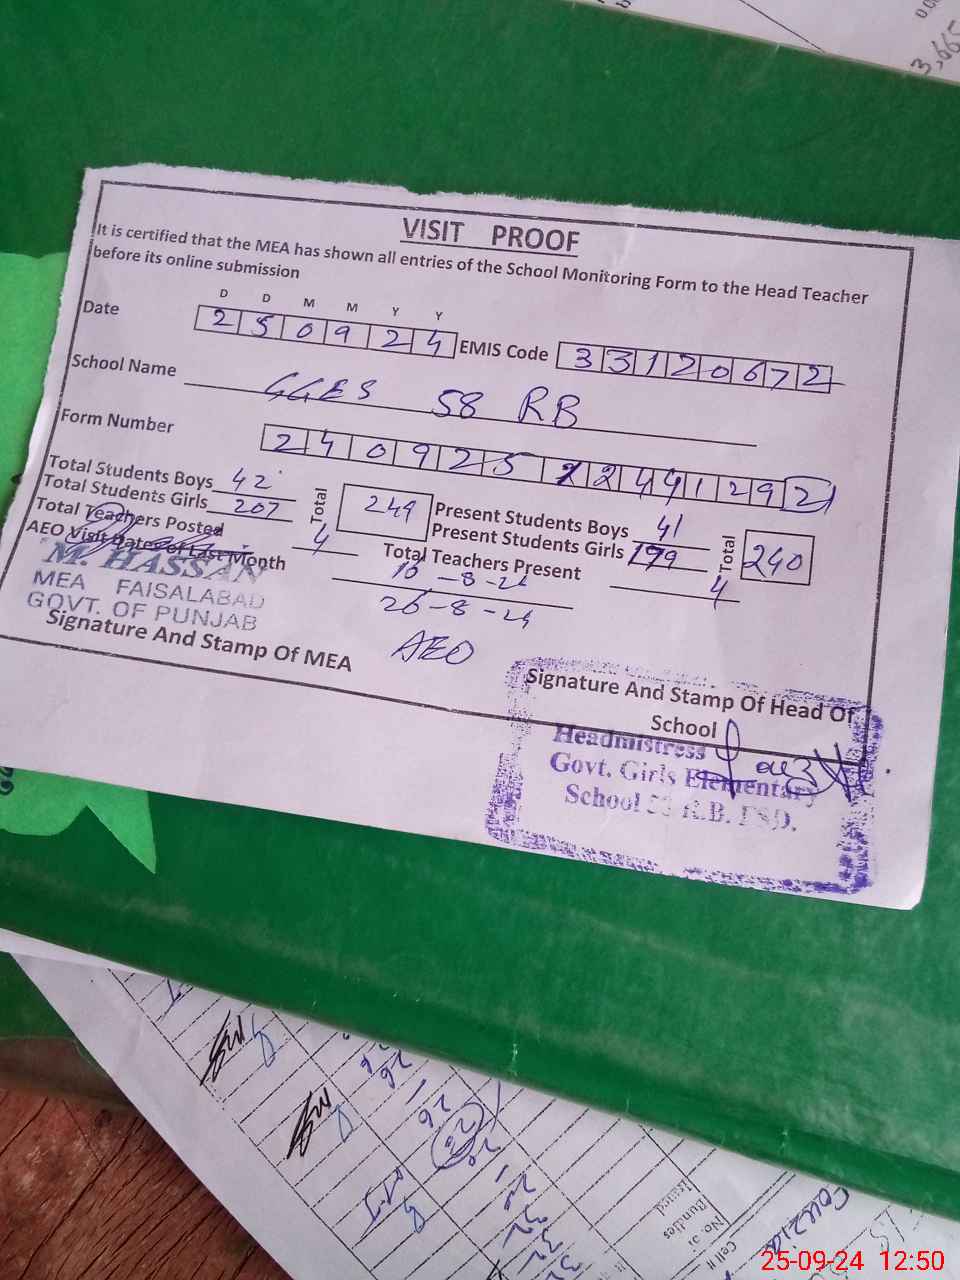 3,665
VISIT PROOF
It is certified that the MEA has shown all entries of the School Monitoring Form to the Head Teacher
before its online submission
D D M M Y Y
Date 2 5 0 9 2 4 EMIS Code 3 3 1 2 0 6 7 2
School Name GGES 58 RB
Form Number 2 4 0 9 2 5 1 2 4 9 1 2 9 2
Total Students Boys 42 Total 249 Present Students Boys 41 Total 240
Total Students Girls 207 Present Students Girls 199
Total Teachers Posted 4 Total Teachers Present 4
AEO Visit Dates of Last Month 10-8-24
26-8-24
AEO
M. HASSAN
MEA FAISALABAD
GOVT. OF PUNJAB
Signature And Stamp Of MEA
Signature And Stamp Of Head Of
School
Headmistress
Govt. Girls Elementary
School 58 R.B. FSD.
No. of
Bundles
Issued
Cell #
Fouzia
25-09-24 12:50